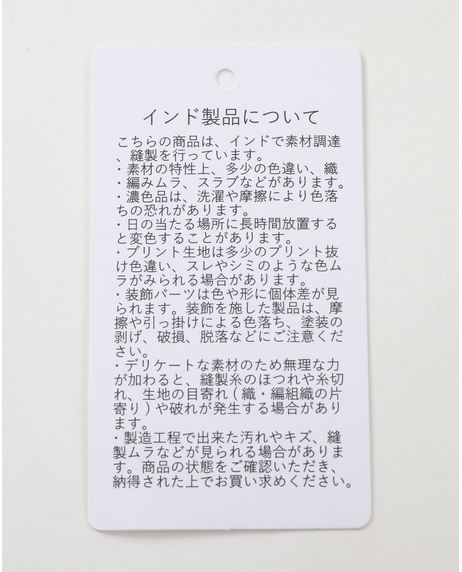 インド製品について
こちらの商品は、インドで素材調達
、縫製を行っています。
・素材の特性上、多少の色違い、織
・編みムラ、スラブなどがあります。
・濃色品は、洗濯や摩擦により色落
ちの恐れがあります。
・日の当たる場所に長時間放置する
と変色することがあります。
・プリント生地は多少のプリント抜
け色違い、スレやシミのような色ム
ラがみられる場合があります。
・装飾パーツは色や形に個体差が見
られます。装飾を施した製品は、摩
擦や引っ掛けによる色落ち、塗装の
剥げ、破損、脱落などにご注意くだ
さい。
・デリケートな素材のため無理な力
が加わると、縫製糸のほつれや糸切
れ、生地の目寄れ(織・編組織の片
寄り)や破れが発生する場合があり
ます。
・製造工程で出来た汚れやキズ、縫
製ムラなどが見られる場合がありま
す。商品の状態をご確認いただき、
納得された上でお買い求めください。